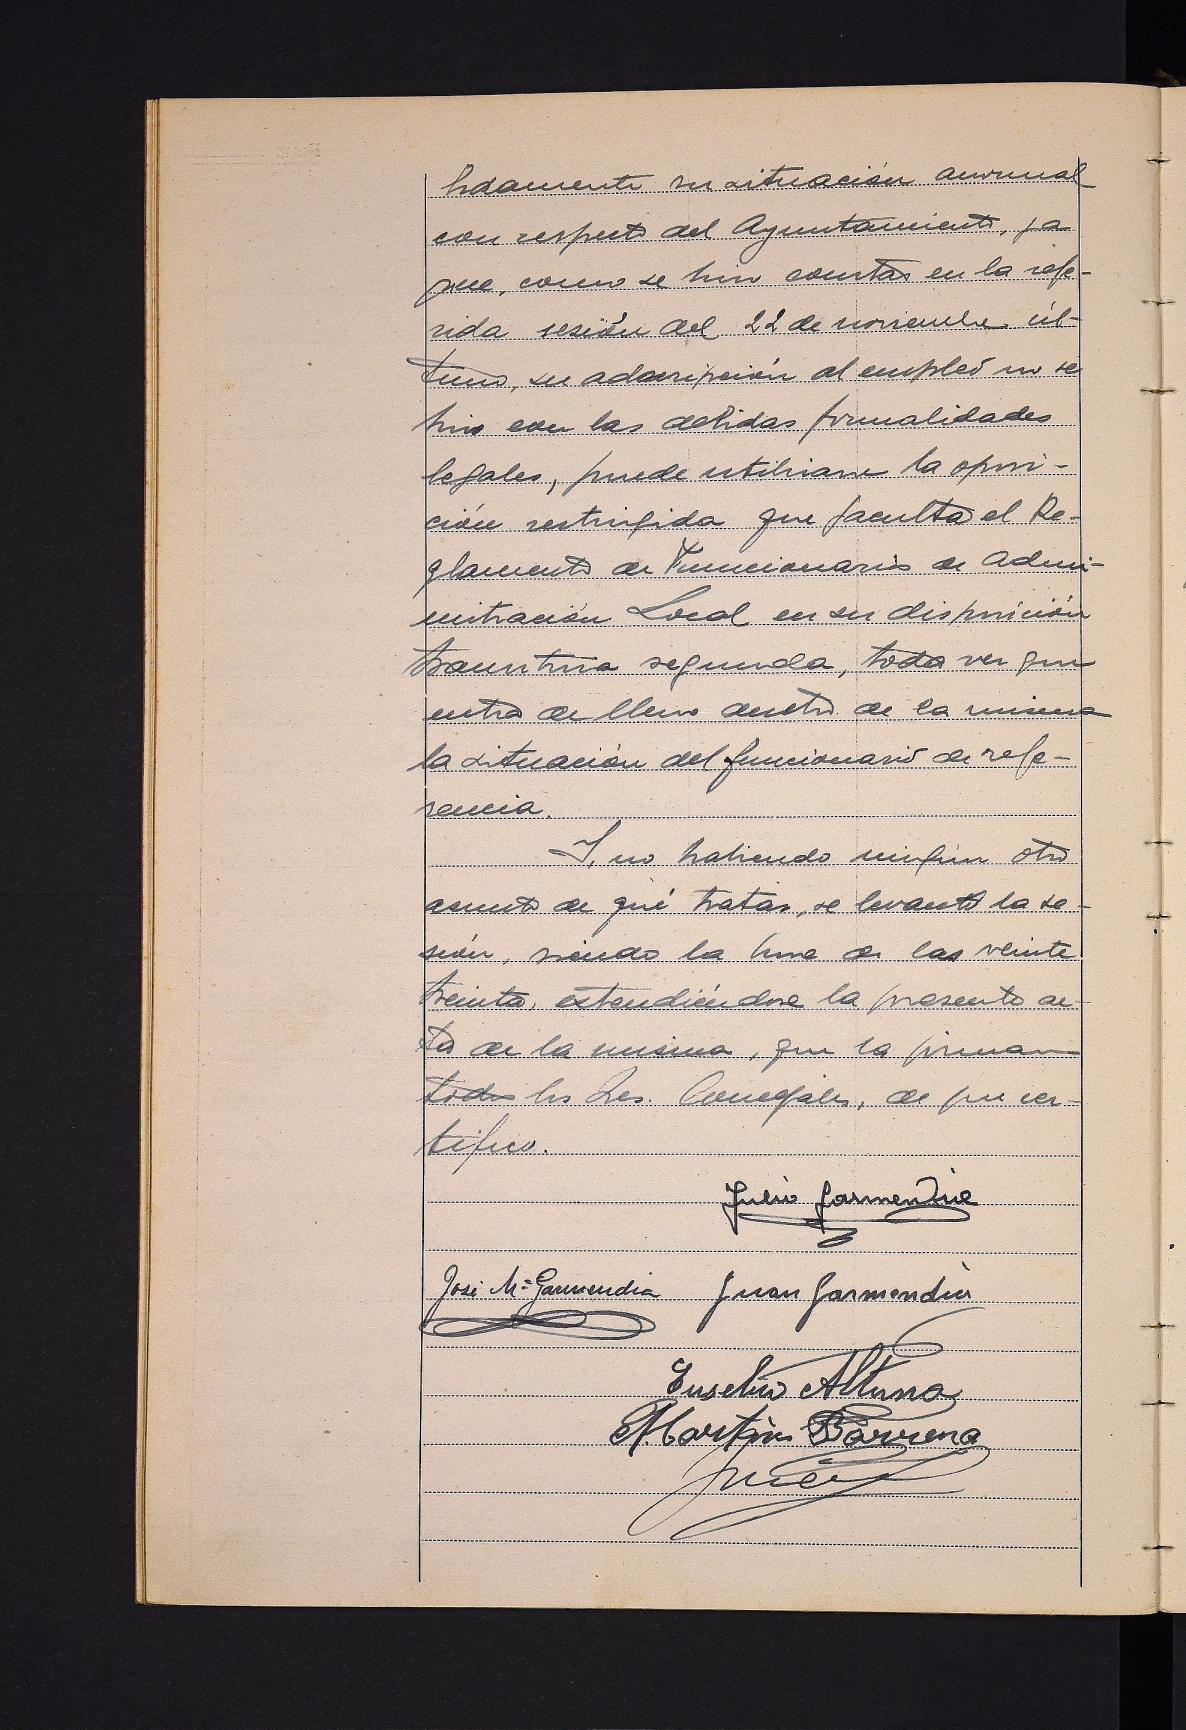 lidamente su situación anormal
con respecto del Ayuntamiento, ya
que, como se hizo constar en la refe-
rida sesión del 22 de noviembre úl-
timo, su adscripción al empleo no se
hizo con las debidas formalidades
legales, puede utilizarse la oposi-
ción restringida que faculta el Re-
glamento de Funcionarios de Admi-
nistración Local en su disposición
transitoria segunda, toda vez que
entra de lleno dentro de la misma
la situación del funcionario de refe-
rencia.
Y, no habiendo ningún otro
asunto de qué tratar, se levantó la se-
sión, siendo la hora de las veinte
treinta, extendiéndose la presente ac-
ta de la misma, que la firman
todos los Sres. Concejales, de que cer-
tifico.
Julio Garmendia
José Mª Garmendia Juan Garmendia
Eusebio Altuna
Martin Barrena